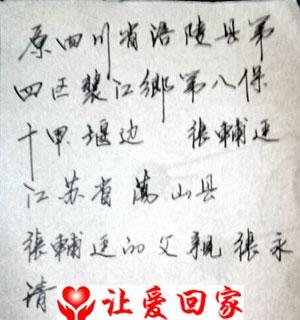 原四川省涪陵县第
四区龑江鄉第八保
十甲堰边 张輔廷
江苏省萬山县
张輔廷的父親张永
清
让爱回家